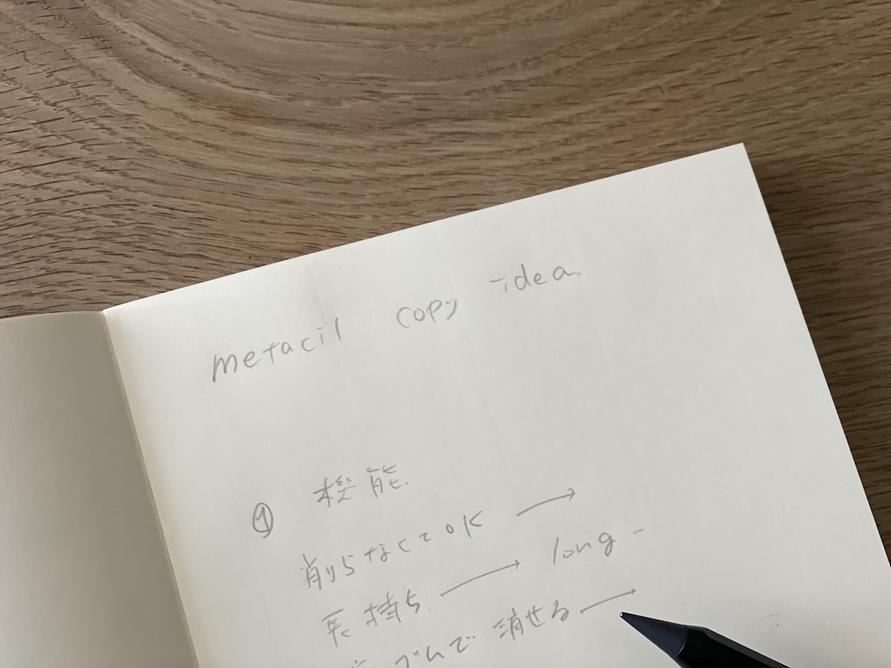 metacil copy idea
① 機能
削らなくてOK →
長持ち → long -
ゴムで 消せる →